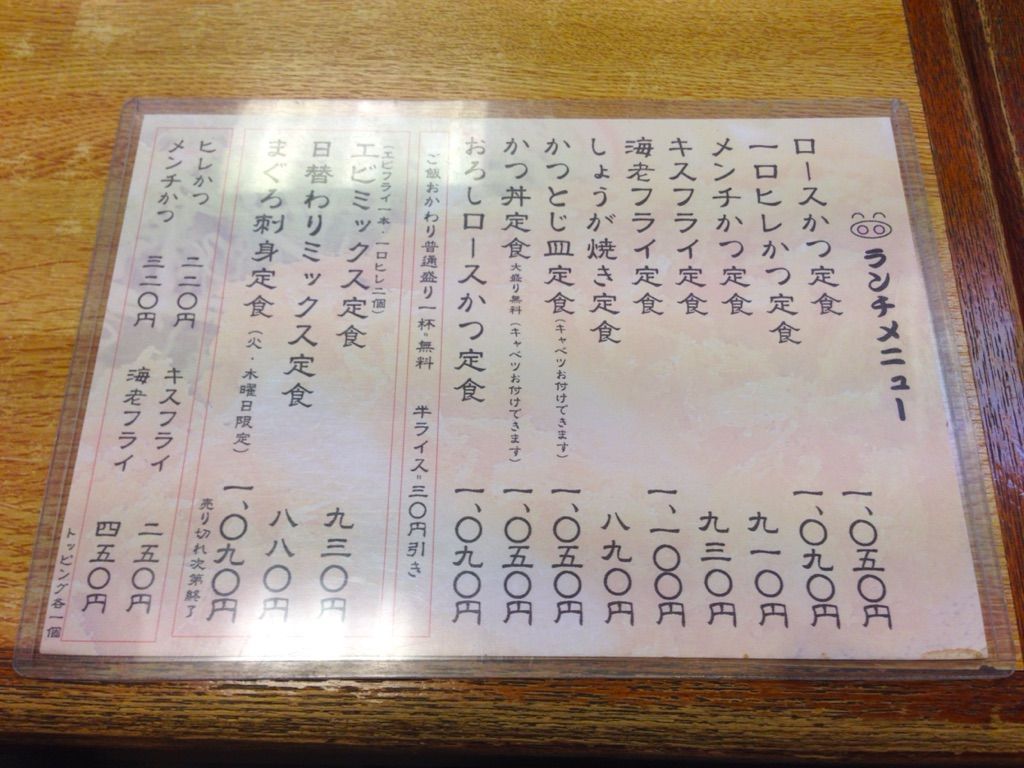 ランチメニュー
ロースかつ定食 一、〇五〇円
一口ヒレかつ定食 一、〇九〇円
メンチかつ定食 九一〇円
キスフライ定食 九三〇円
海老フライ定食 一、一〇〇円
しょうが焼き定食 八九〇円
かつとじ皿定食(キャベツお付けできます) 一、〇五〇円
かつ丼定食 大盛り無料(キャベツお付けできます) 一、〇五〇円
おろしロースかつ定食 一、〇九〇円
ご飯おかわり普通盛り一杯"無料 半ライス"三〇円引き
(エビフライ一本・一口ヒレ二個)
エビミックス定食 九三〇円
日替わりミックス定食 八八〇円
まぐろ刺身定食(火・木曜日限定) 一、〇九〇円
売り切れ次第終了
ヒレかつ 二二〇円 キスフライ 二五〇円
メンチかつ 三二〇円 海老フライ 四五〇円
トッピング各一個